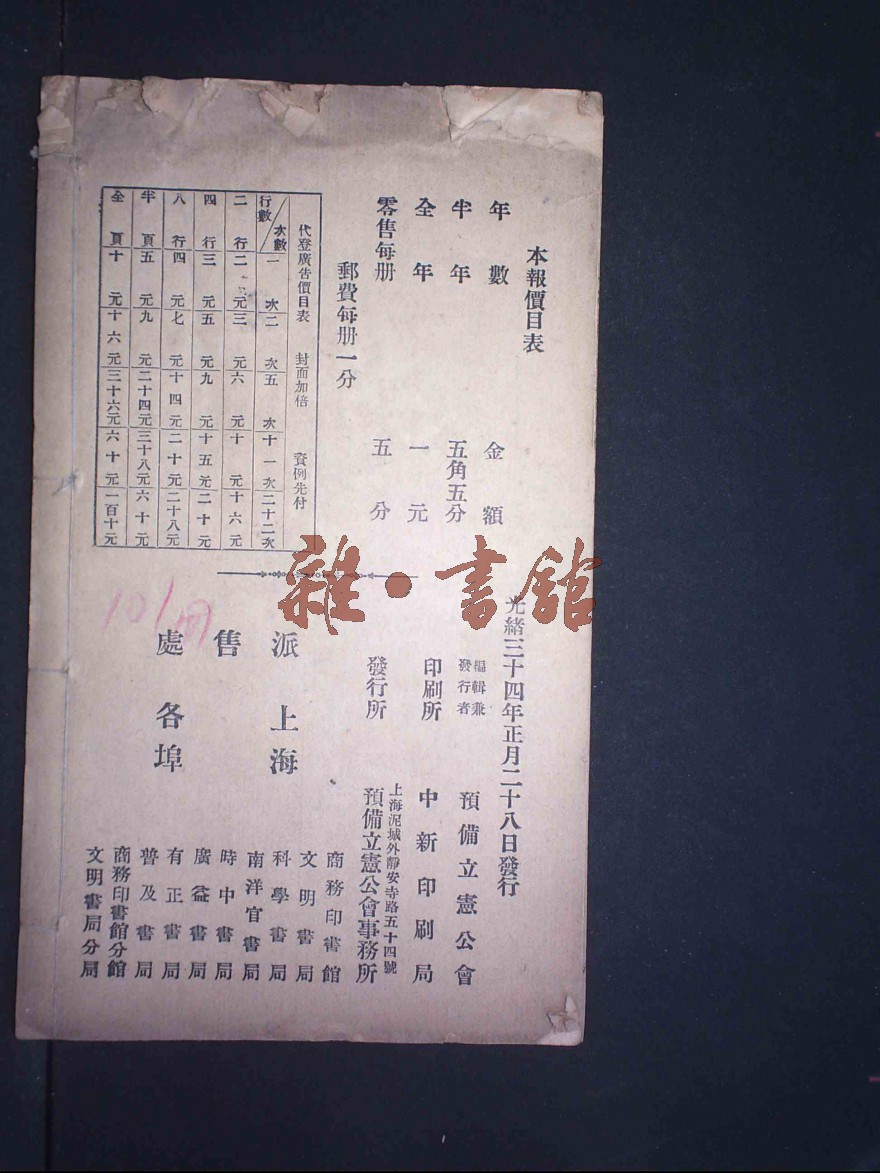 本報價目表
年數 金額
半年 五角五分
全年 一元
零售每册 五分
郵費每册一分
代登廣告價目表 封面加倍 資例先付
行數 次數 一次 二次 五次 十一次 二十二次
二行 二元 三元 六元 十元 十六元
四行 三元 五元 九元 十五元 二十元
八行 四元 七元 十四元 二十元 二十八元
半頁 五元 九元 二十四元 三十八元 六十元
全頁 十元 十六元 三十六元 六十元 一百十元
光緒三十四年正月二十八日發行
編輯兼發行者 預備立憲公會
印刷所 中新印刷局
發行所 上海泥城外靜安寺路五十四號
預備立憲公會事務所
派售處 上海 各埠
商務印書館
文明書局
科學書局
南洋官書局
時中書局
廣益書局
有正書局
普及書局
商務印書館分館
文明書局分局
101冊
雜·書館